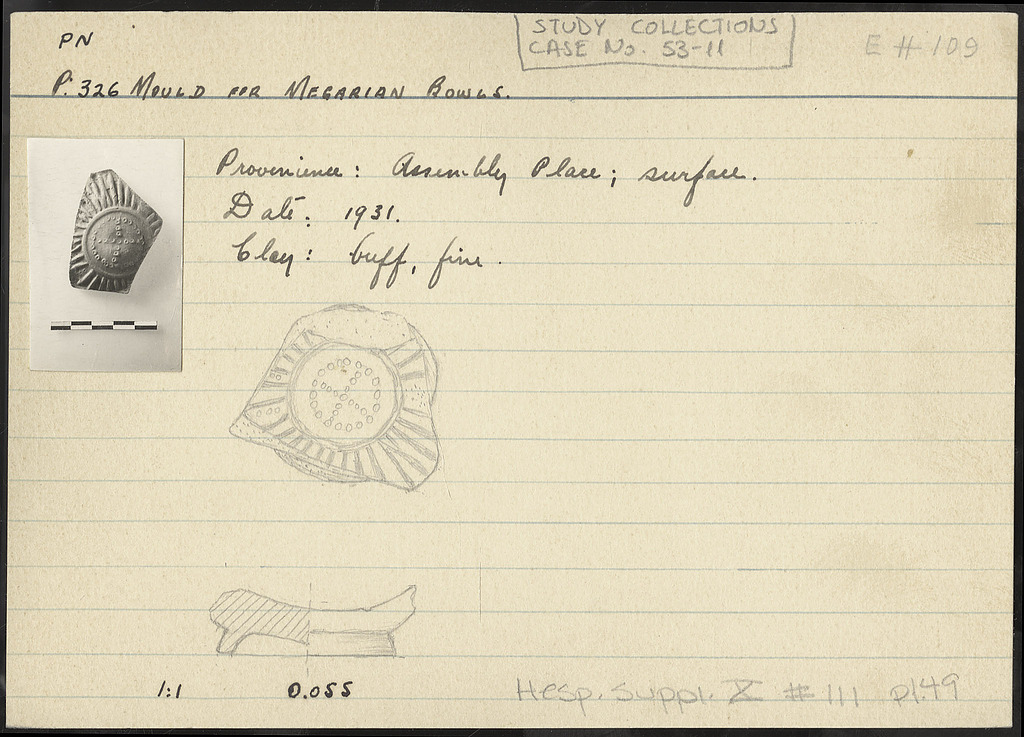 PN
STUDY COLLECTIONS
CASE No. 53-11
E # 109
P. 326 MOULD FOR MEGARIAN BOWLS.
Provenience: Assembly Place; surface.
Date: 1931.
Clay: buff, fine.
1:1
0.055
Hesp. Suppl. X # 111 pl.49